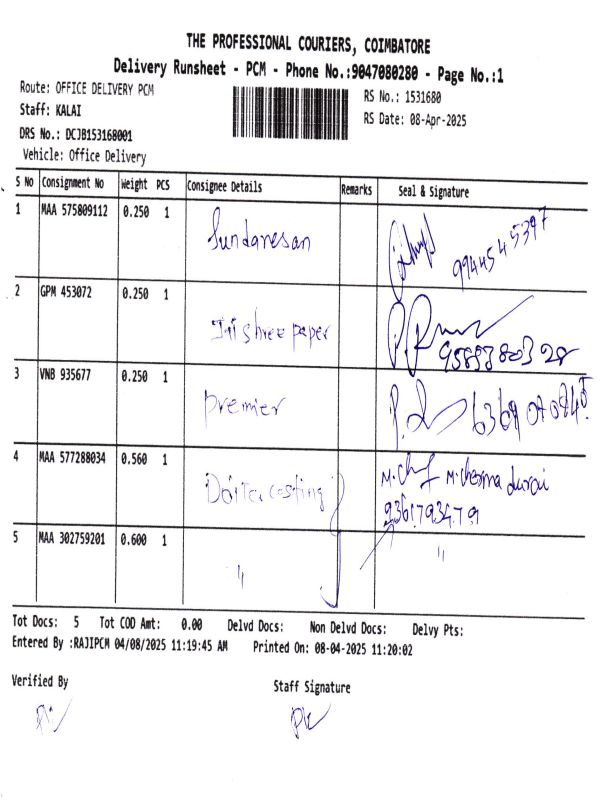 THE PROFESSIONAL COURIERS, COIMBATORE
Delivery Runsheet - PCM - Phone No.:9047080280 - Page No.:1
Route: OFFICE DELIVERY PCM
Staff: KALAI
DRS No.: DCJB153168001
Vehicle: Office Delivery
RS No.: 1531680
RS Date: 08-Apr-2025
S No Consignment No Weight PCS Consignee Details Remarks Seal & Signature
1 MAA 575809112 0.250 1 Sundaresan 9944545397
2 GPM 453072 0.250 1 paper
3 VNB 935677 0.250 1 Premier
4 MAA 577288034 0.560 1 casting M.
9361793479
5 MAA 302759201 0.600 1 " "
Tot Docs: 5 Tot COD Amt: 0.00 Delvd Docs: Non Delvd Docs: Delvy Pts:
Entered By :RAJIPCM 04/08/2025 11:19:45 AM Printed On: 08-04-2025 11:20:02
Verified By Staff Signature